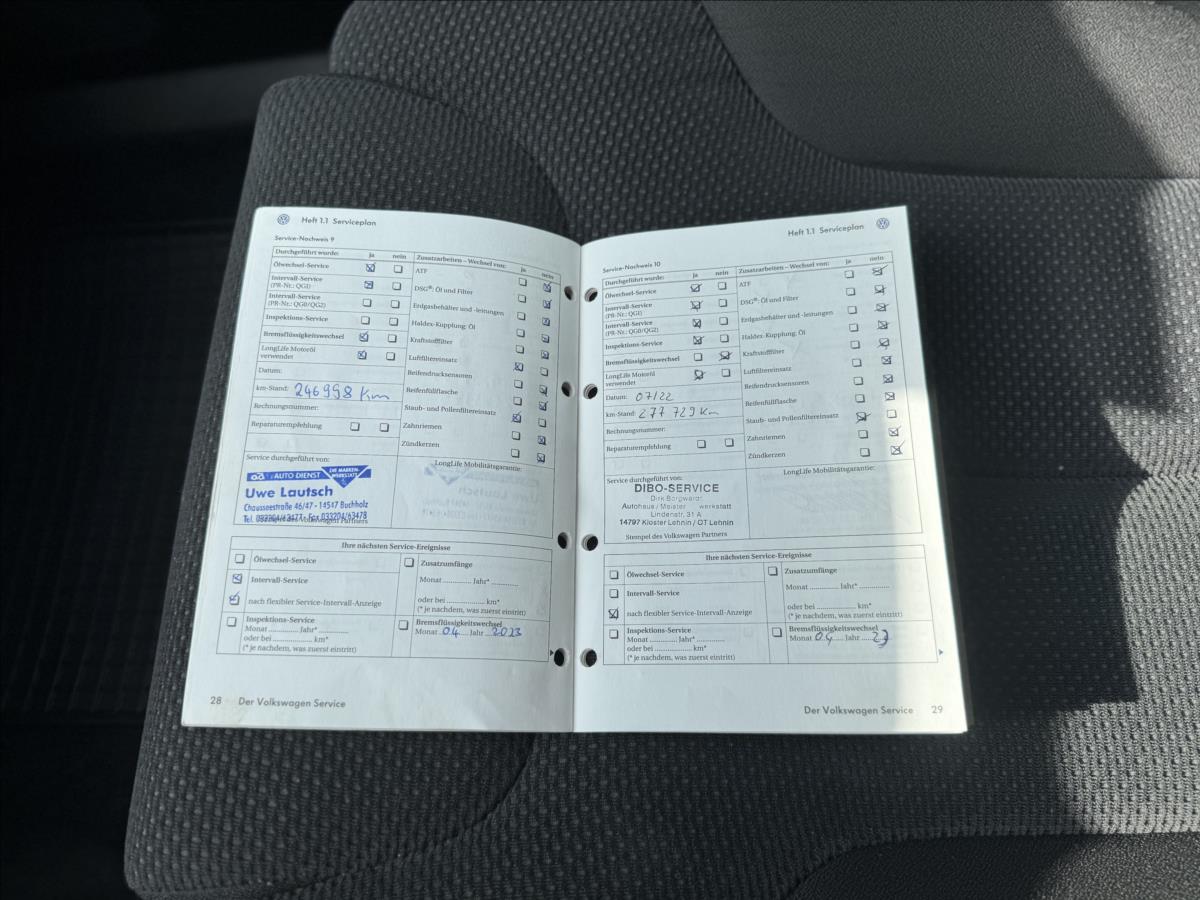 Heft 1.1 Serviceplan
Service-Nachweis 9
Durchgeführt wurde: ja nein
Ölwechsel-Service
Intervall-Service
(PR-Nr.: QGI)
Intervall-Service
(PR-Nr.: QG0/QG2)
Inspektions-Service
Bremsflüssigkeitswechsel
LongLife Motoröl
verwendet
Datum:
km-Stand: 246998 Km
Rechnungsnummer:
Reparaturempfehlung
Zusatzarbeiten – Wechsel von: ja nein
ATF
DSG®: Öl und Filter
Erdgasbehälter und -leitungen
Haldex-Kupplung: Öl
Kraftstofffilter
Luftfiltereinsatz
Reifendrucksensoren
Reifenfüllflasche
Staub- und Pollenfiltereinsatz
Zahnriemen
Zündkerzen
Service durchgeführt von:
AUTO DIENST DIE MARKEN-
WERKSTATT
Uwe Lautsch
Chausseestraße 46/47 - 14547 Buchholz
Tel. 033204/63477 - Fax 033204/63478
LongLife Mobilitätsgarantie:
Ihre nächsten Service-Ereignisse
Ölwechsel-Service
Intervall-Service
nach flexibler Service-Intervall-Anzeige
Inspektions-Service
Monat ............. Jahr* .............
oder bei ............. km*
(* je nachdem, was zuerst eintritt)
Zusatzumfänge
Monat ............. Jahr* .............
oder bei ............. km*
(* je nachdem, was zuerst eintritt)
Bremsflüssigkeitswechsel
Monat 04 Jahr 2023
28 Der Volkswagen Service
Heft 1.1 Serviceplan
Service-Nachweis 10
Durchgeführt wurde: ja nein
Ölwechsel-Service
Intervall-Service
(PR-Nr.: QGI)
Intervall-Service
(PR-Nr.: QG0/QG2)
Inspektions-Service
Bremsflüssigkeitswechsel
LongLife Motoröl
verwendet
Datum: 07/22
km-Stand: 277 729 Km
Rechnungsnummer:
Reparaturempfehlung
Zusatzarbeiten – Wechsel von: ja nein
ATF
DSG®: Öl und Filter
Erdgasbehälter und -leitungen
Haldex-Kupplung: Öl
Kraftstofffilter
Luftfiltereinsatz
Reifendrucksensoren
Reifenfüllflasche
Staub- und Pollenfiltereinsatz
Zahnriemen
Zündkerzen
Service durchgeführt von:
DIBO-SERVICE
Dirk Borgwardt
Autohaus / Meisterwerkstatt
Lindenstr. 31 A
14797 Kloster Lehnin / OT Lehnin
Stempel des Volkswagen Partners
LongLife Mobilitätsgarantie:
Ihre nächsten Service-Ereignisse
Ölwechsel-Service
Intervall-Service
nach flexibler Service-Intervall-Anzeige
Inspektions-Service
Monat ............. Jahr* .............
oder bei ............. km*
(* je nachdem, was zuerst eintritt)
Zusatzumfänge
Monat ............. Jahr* .............
oder bei ............. km*
(* je nachdem, was zuerst eintritt)
Bremsflüssigkeitswechsel
Monat 04 Jahr 23
Der Volkswagen Service 29